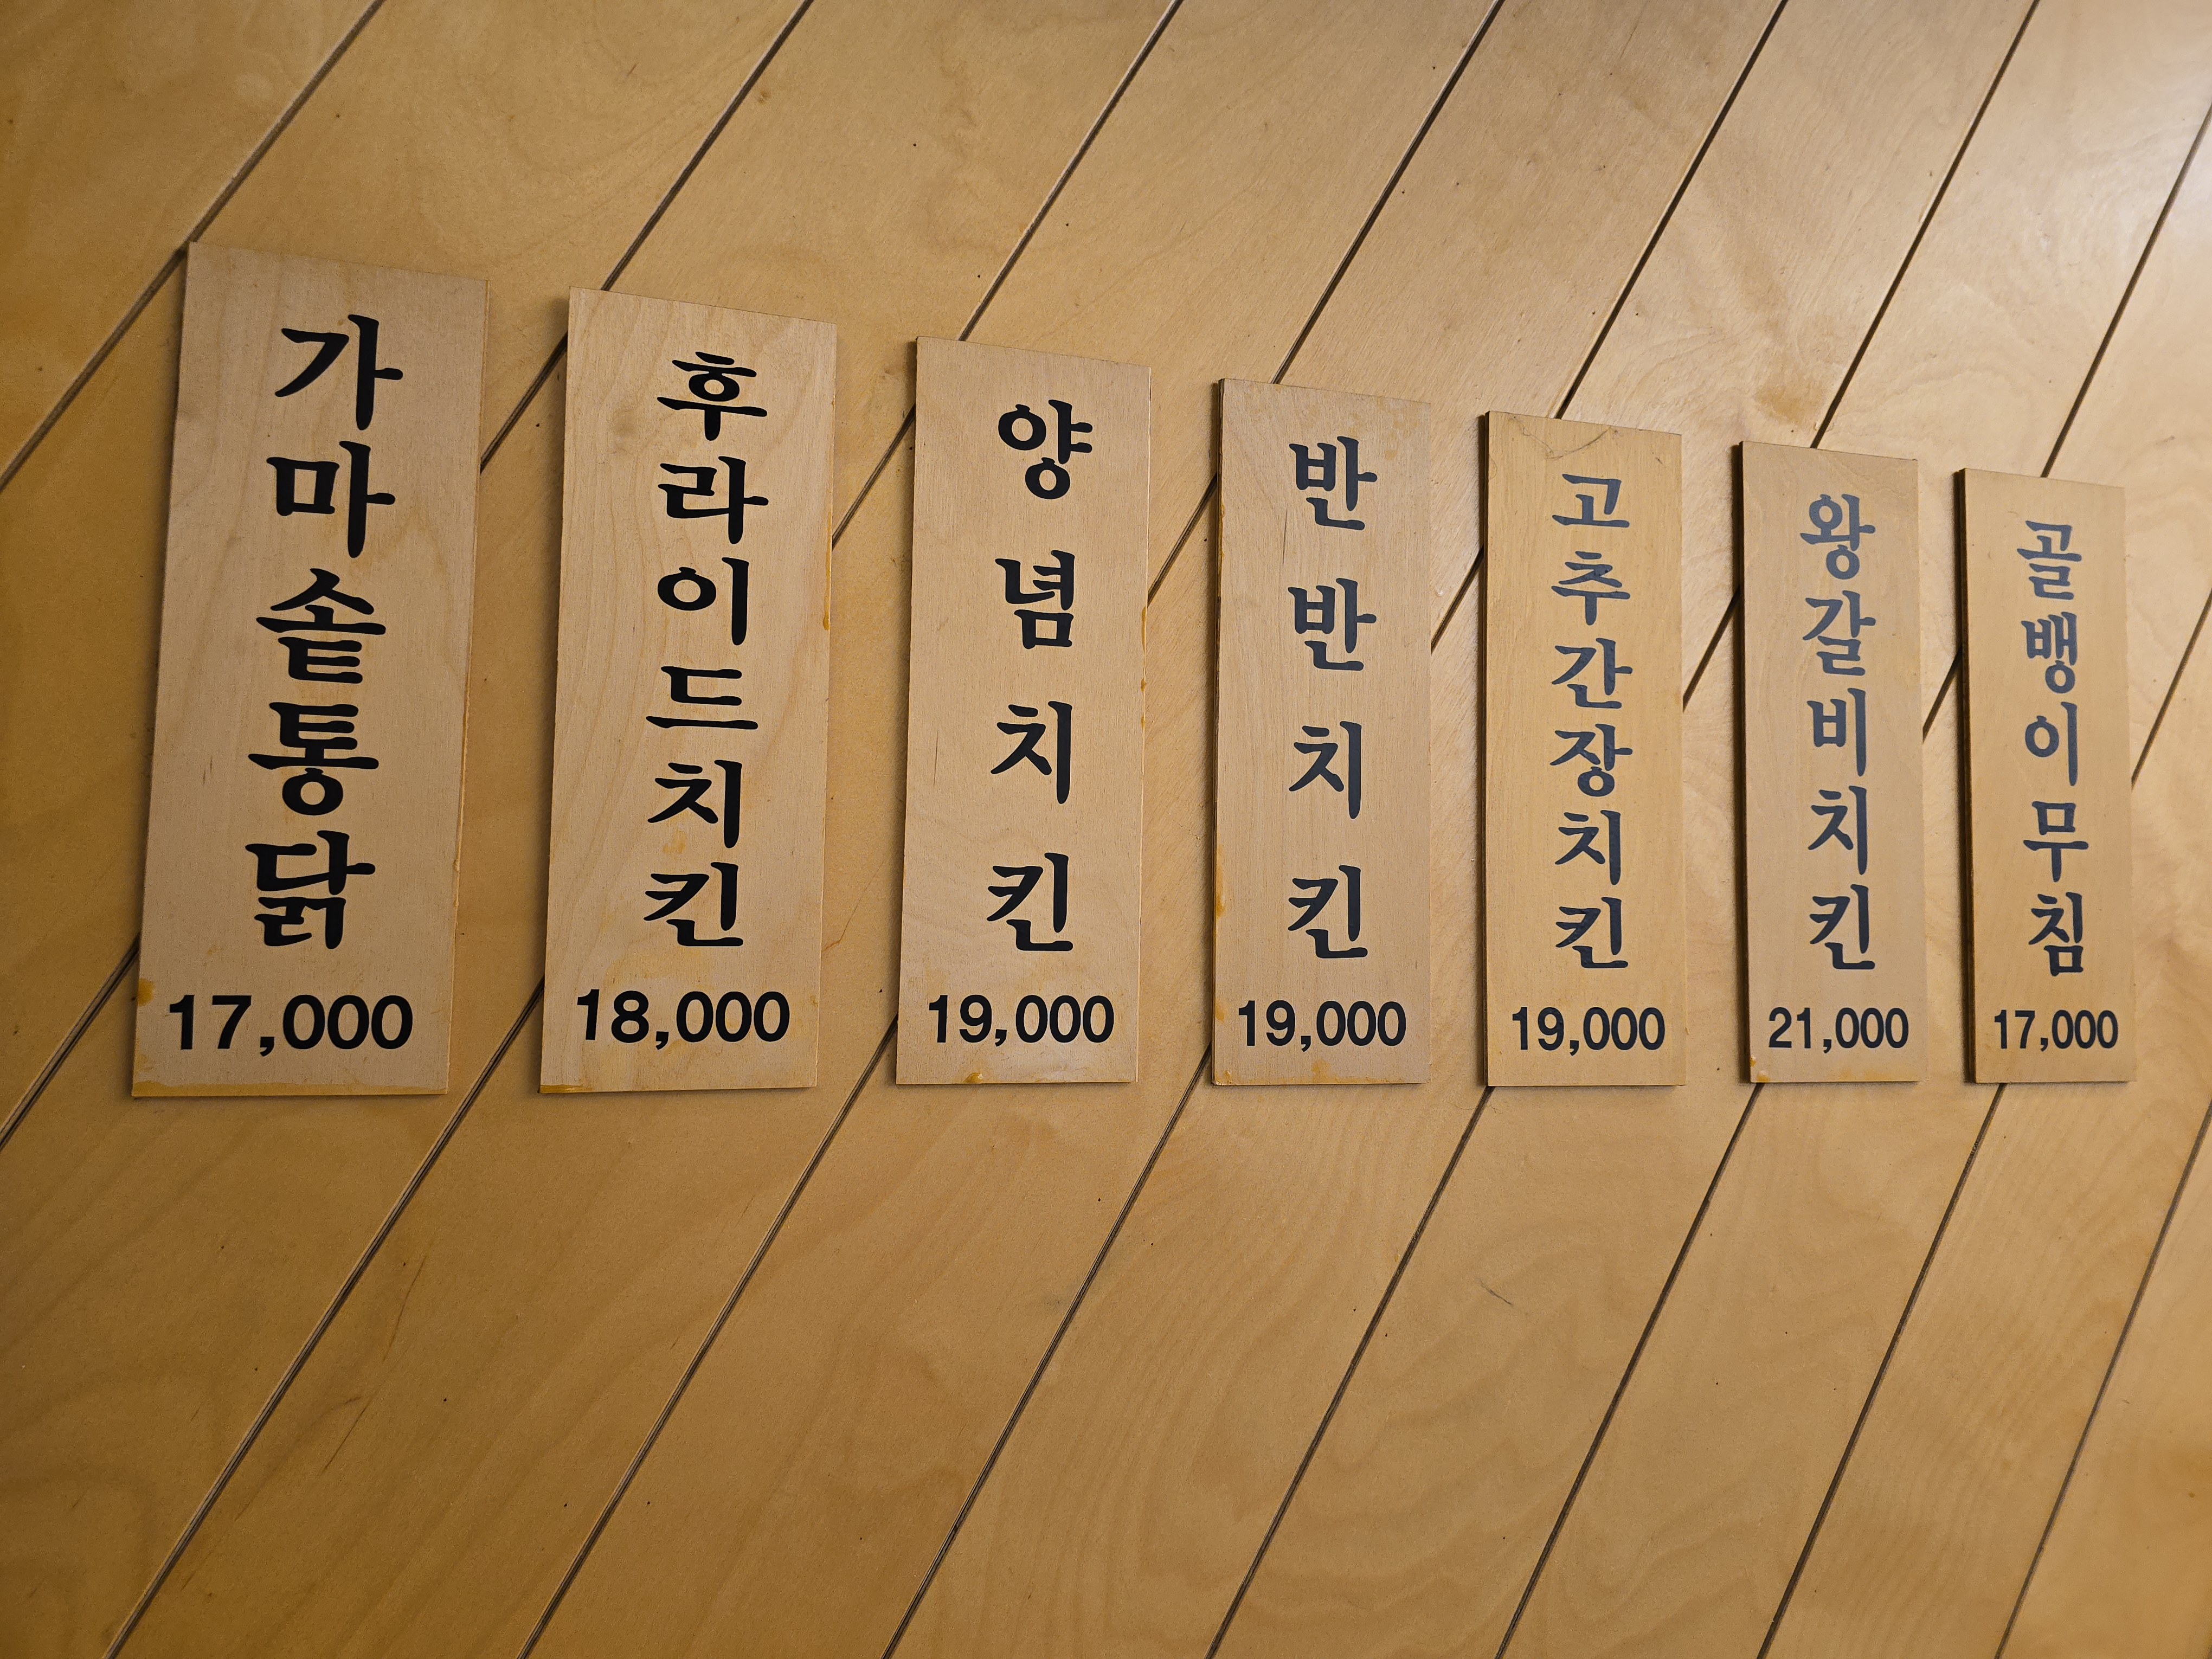 가마솥통닭
17,000
후라이드치킨
18,000
양념치킨
19,000
반반치킨
19,000
고추간장치킨
19,000
왕갈비치킨
21,000
골뱅이무침
17,000